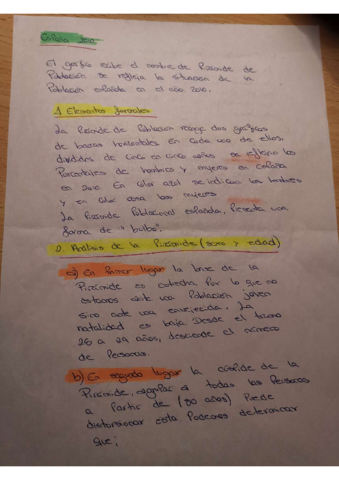 España 2010
El gráfico recibe el nombre de Pirámide de
Población se refleja la situación de la
Población española en el año 2010.
1. Elementos Generales
La Pirámide de Población recoge dos gráficos
de barras horizontales en cada uno de ellos,
divididos de cinco en cinco años se reflejan los
Porcentajes de hombres y mujeres en España
en 2010. En color azul se indican los hombres
y en color rosa las mujeres
La Pirámide Poblacional española, Presenta una
forma de "bulbo".
2. Análisis de la Pirámide (sexo y edad)
a) En Primer lugar la base de la
Pirámide es estrecha, Por lo que no
estamos ante una Población joven
sino ante una envejecida. La
natalidad es baja. Desde el tramo
25 a 29 años, desciende el número
de Personas.
b) En segundo lugar la cúspide de la
Pirámide, engloba a todas las Personas
a Partir de (90 años) Puede
distorsionar esta Podemos determinar
que;